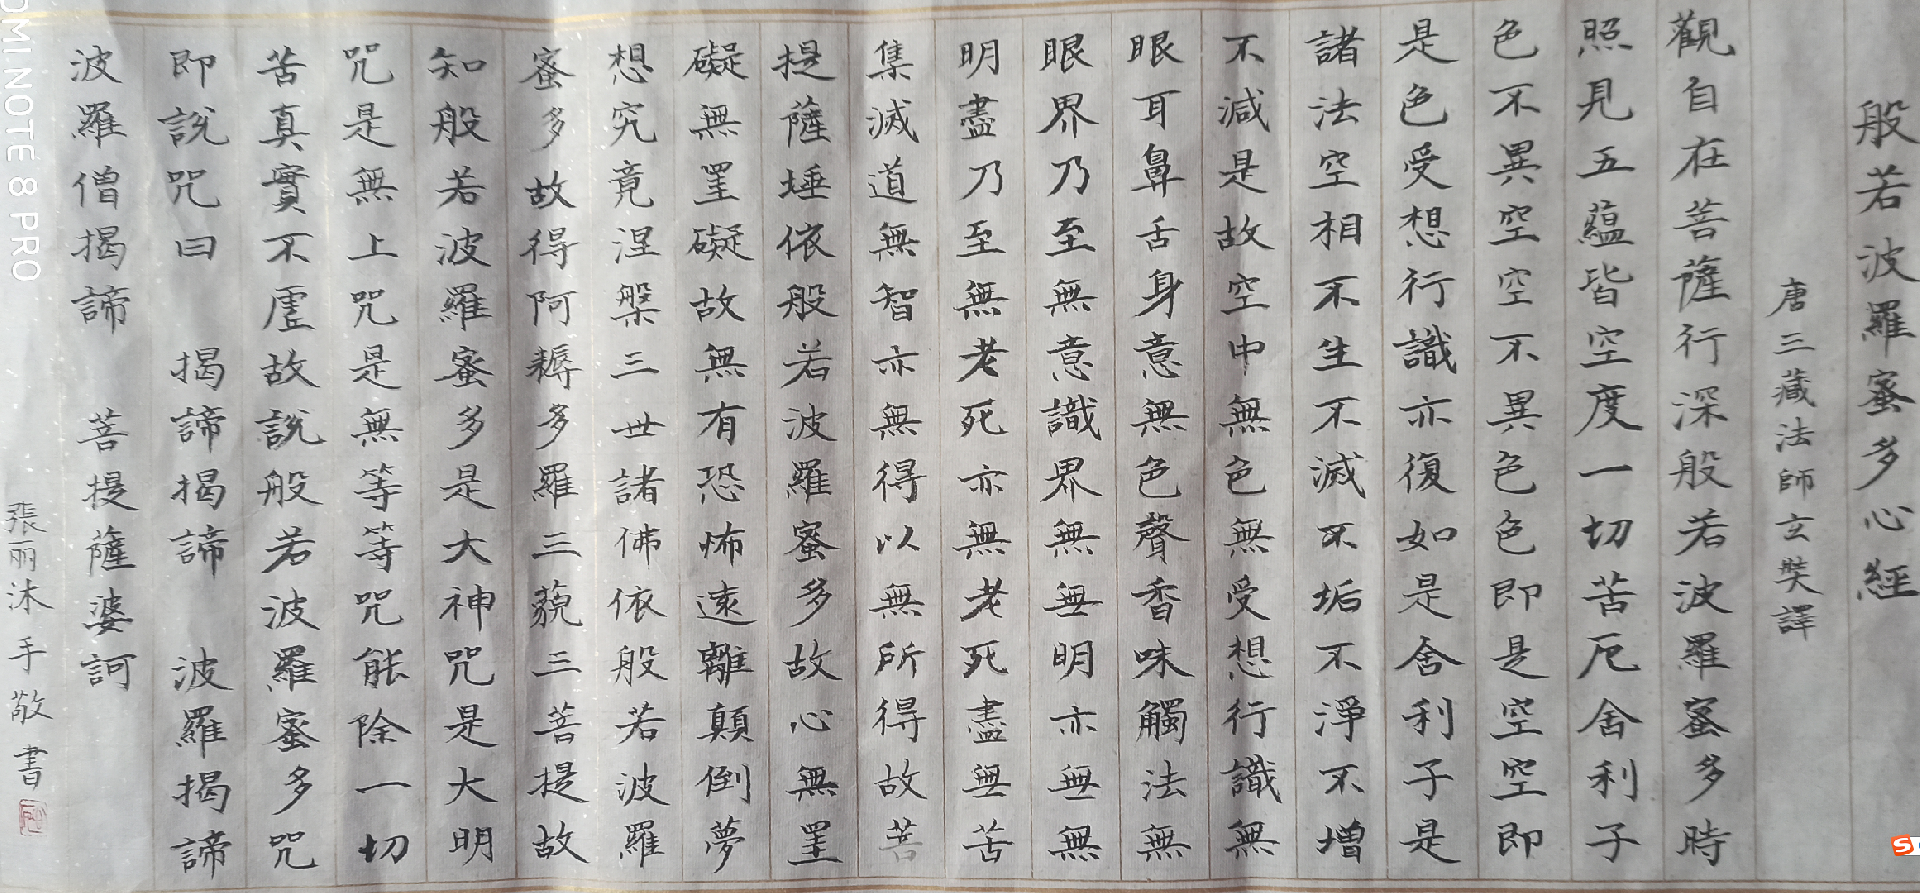 般若波羅蜜多心經
唐三藏法師玄奘譯
觀自在菩薩行深般若波羅蜜多時
照見五蘊皆空度一切苦厄舍利子
色不異空空不異色色即是空空即
是色受想行識亦復如是舍利子是
諸法空相不生不滅不垢不淨不增
不減是故空中無色無受想行識無
眼耳鼻舌身意無色聲香味觸法無
眼界乃至無意識界無無明亦無無
明盡乃至無老死亦無老死盡無苦
集滅道無智亦無得以無所得故菩
提薩埵依般若波羅蜜多故心無罣
礙無罣礙故無有恐怖遠離顛倒夢
想究竟涅槃三世諸佛依般若波羅
蜜多故得阿耨多羅三藐三菩提故
知般若波羅蜜多是大神咒是大明
咒是無上咒是無等等咒能除一切
苦真實不虛故說般若波羅蜜多咒
即說咒曰 揭諦揭諦 波羅揭諦
波羅僧揭諦 菩提薩婆訶
張丽沐手敬書
OMI NOTE 8 PRO